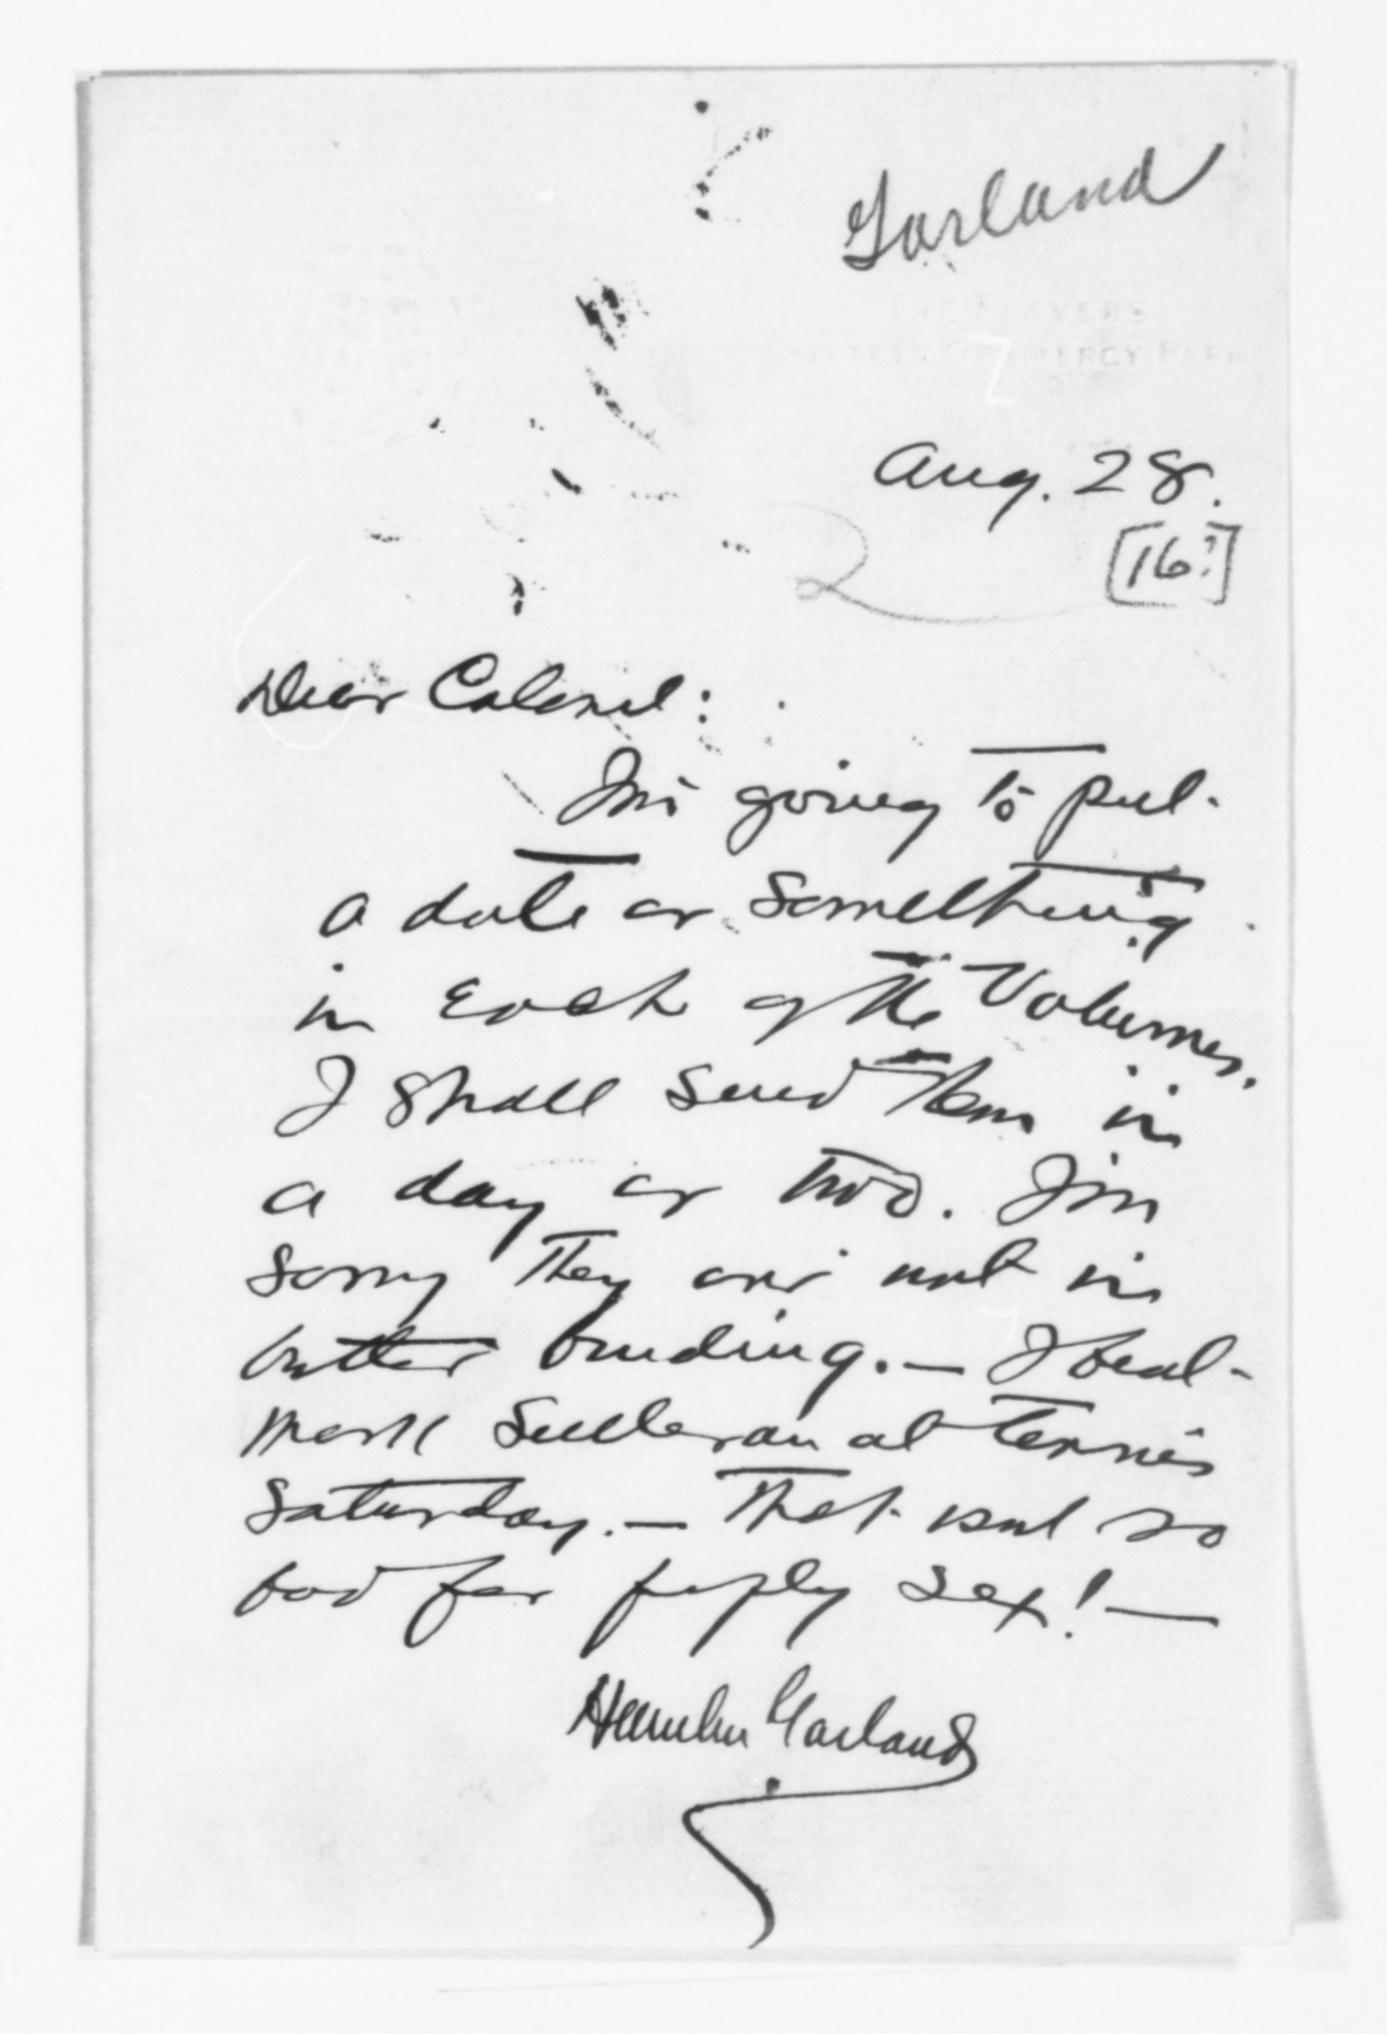 Garland
THE PLAYERS
SIXTEEN GRAMERCY PARK
Aug. 28.
[16?]
Dear Colonel:
I'm going to put
a date or something
in each of the volumes.
I shall send them in
a day or two. I'm
sorry they are not in
better binding. — I beat
Mark Sullivan at tennis
Saturday. — That isnt so
bad for fifty six! —
Hamlin Garland